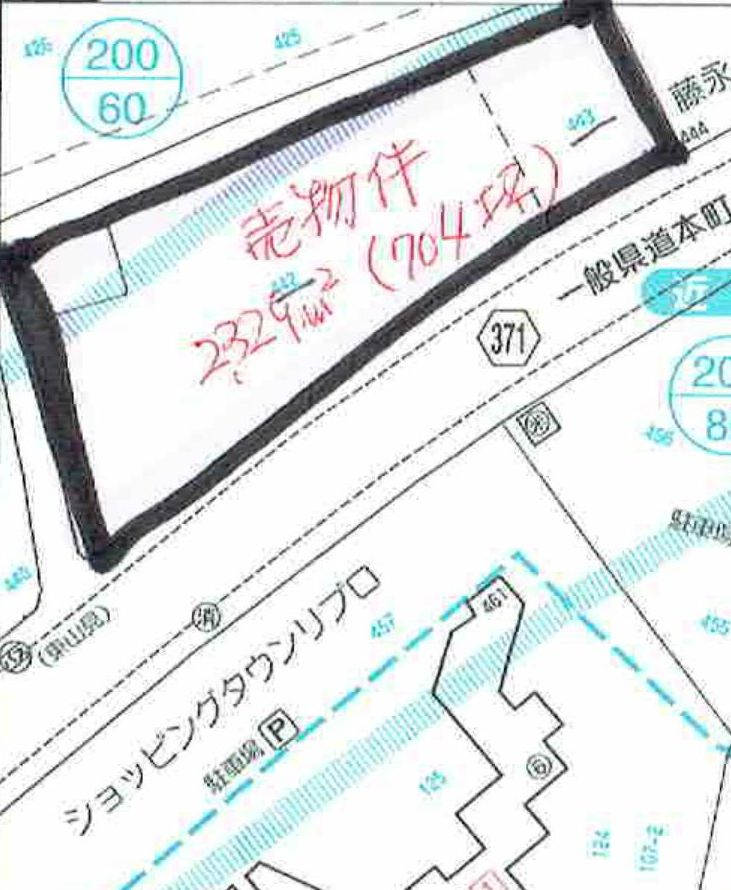 426
425
200
60
藤永
443
444
売物件
2,329㎡ (704坪)
442
一般県道本町
近
371
20
8
456
440
(東山見)
消
ショッピングタウンリブロ
457
461
駐車場 P
455
125
6
124
107-2
1